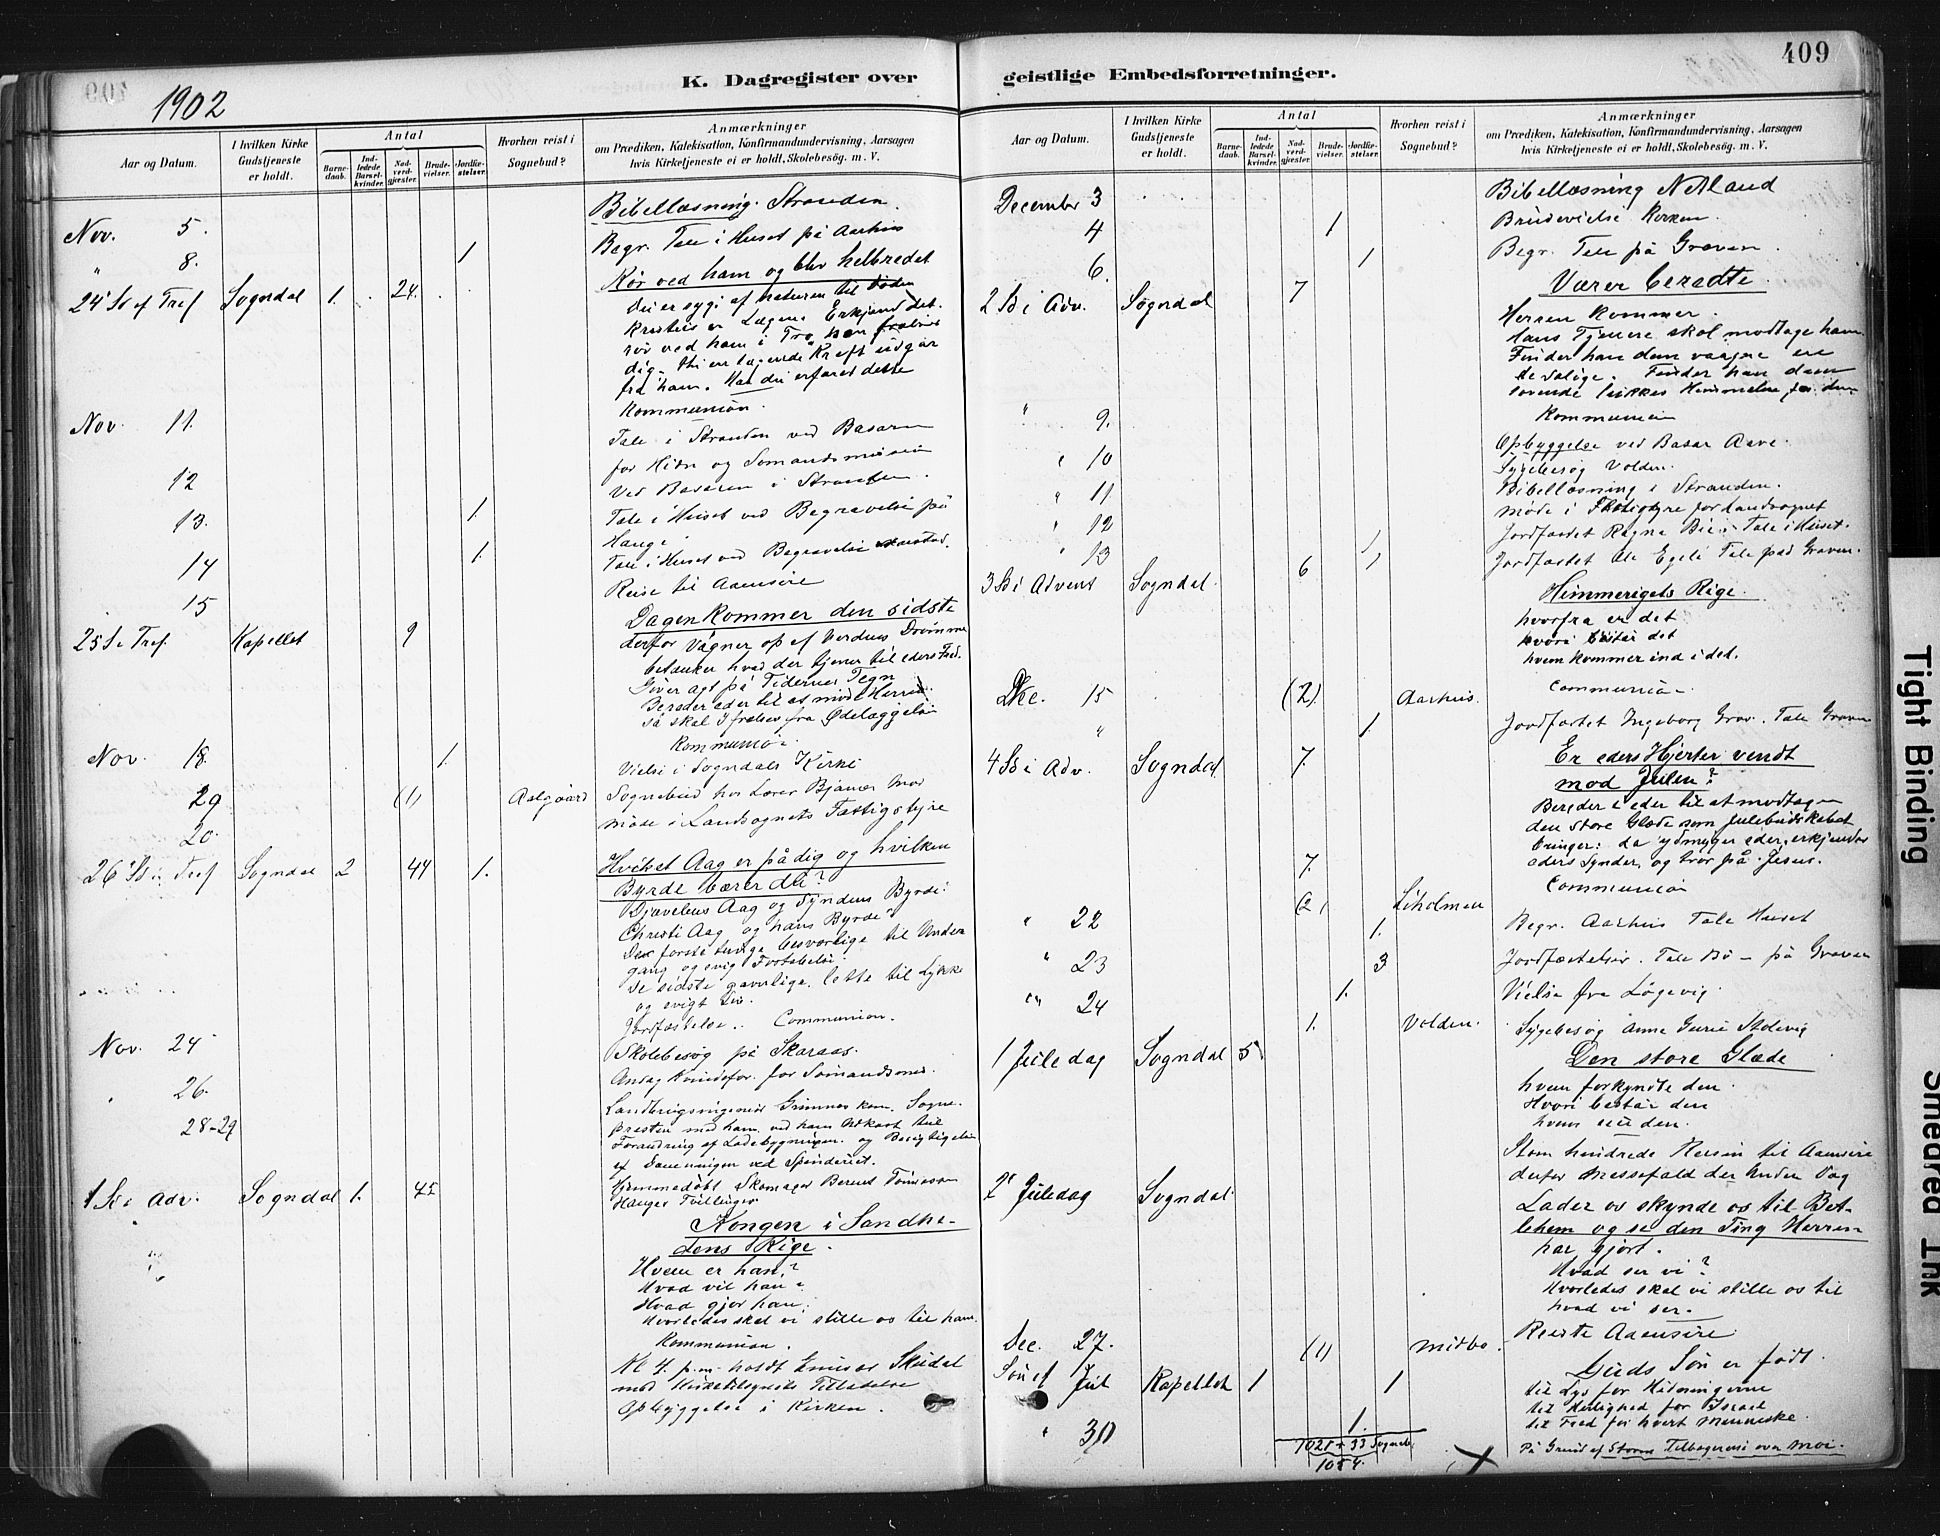 409
K. Dagregister over geistlige Embedsforretninger.
1902
Aar og Datum.
I hvilken Kirke Gudstjeneste er holdt.
Antal
Barnedaab.
Indledede Barselkvinder.
Nadverdgjæster.
Brudevielser.
Jordfæstelser.
Hvorhen reist i Sognebud?
Anmærkninger
om Prædiken, Katekisation, Konfirmandundervisning, Aarsagen
hvis Kirketjeneste ei er holdt, Skolebesøg. m. V.
Nov. 5. Bibellæsning Stranden.
" 8. 1 Begr. Tale i Huset på Aarhus
24 S ef Tref Sogndal 1. 24. Rør ved ham og bliv helbredet
Du er syg af naturen til Døden
Kristus er Lægen. Erkjend det.
rør ved ham i Tro
dig. thi en lægende Kraft udgår
fra ham. Har du erfaret dette
Kommunion.
Nov. 11. Tale i Stranden ved Basaren
for Hedn og Sømandsmission
12 Ved Basaren i Stranden.
13. 1 Tale i Huset ved Begravelse på
Hauge
14 1. Tale i Huset ved Begravelse
15 Reise til Aaensire
25 S e Tref. Kapellet 9 Dagen kommer den sidste
derfor Vågner op af Verdens Drømme
betænker hvad der tjener til eders Fred.
Giver agt på Tidernes Tegn
Bereder eder til at møde Herren.
så skal I frelses fra Ødelæggelse
Kommunion
Nov. 18. 1. Vielse i Sogndals Kirke
29 (1) Aalgaard Sognebud hos Lærer Bjånes Mor
20. Møde i Landsognets Fattigstyre
26 S i Tref Sogndal 2 44 1. Hvilket Aag er på dig og hvilken
Byrde bærer du?
Djævelens Aag og Syndens Byrde:
Christi Aag og hans Byrde?
De første tunge besværlige til Under
gang og evig Fortabelse.
De sidste gavnlige, lette til Lykke
og evigt Liv.
Jordfæstelse. Communion.
Nov. 24 Skolebesøg på Skaraas.
26. Andag Kvindefor. for Sømandsmis.
28-29 Landbrugsingeniør Grimnes kom. Sogne-
præsten med ham. ved ham Udkast til
Forandring af Ladebygningen. og Besigtigelse
af Dæmningen ved Spinderiet.
1 S i Adv. Sogndal 1. 45 Hjemmedøbt Skomager Bernt Tønnessen
Hauges Tvillinger
Kongen i Sandhe-
dens Rige.
Hvem er han?
Hvad vil han?
Hvad gjør han?
Hvorledes skal vi stille os til ham.
Kommunion.
Kl 4 p.m. holdt Emissær Skudal
med Kirketilsynets Tilladelse
Opbyggelse i Kirken.
Aar og Datum.
I hvilken Kirke Gudstjeneste er holdt.
Antal
Barnedaab.
Indledede Barselkvinder.
Nadverdgjæster.
Brudevielser.
Jordfæstelser.
Hvorhen reist i Sognebud?
Anmærkninger
om Prædiken, Katekisation, Konfirmandundervisning, Aarsagen
hvis Kirketjeneste ei er holdt, Skolebesøg. m. V.
December 3 Bibellæsning Netland
4 1 Brudevielse Kirken.
6. 1 Begr. Tale på Graven.
2 S i Adv. Sogndal 7 Værer beredte.
Herren kommer.
Hans Tjenere skal modtage ham.
Finder han dem vaagne ere
de salige. Finder han dem
sovende lukkes Himmelen for dem
Kommunion
" 9. Opbyggelse ved Basar Aave.
" 10 Sygebesøg Volden.
" 11 Bibellæsning i Stranden.
" 12 Møde i Fattigstyre for Landsognet
1 Jordfæstet Ragna Bie. Tale i Huset.
" 13 1 Jordfæstet Ole Egeli Tale på Graven.
3 S i Advent Sogndal. 6 Himmerigets Rige.
hvorfra er det
hvori består det
hvem kommer ind i det.
Communion.
Dec. 15 (2) Aarhus.
" 1. Jordfæstet Ingeborg Grov. Tale Graven
4 S i Adv. Sogndal 7. Er eders Hjerter vendt
mod Julen?
Bereder I eder til at modtagen
den store Glæde som Julebudskabet
bringer: da ydmyger eder, erkjender
eders Synder, og tror på Jesus.
7. Communion
(2) Liholmen
" 22 1. Begr. Aarhus Tale Huset
" 23 3 Jordfæstelser. Tale Bø - på Graven
" 24 1. Vielse fra Løgevig.
1. Volden. Sygebesøg Anne Gurie Stolevig
1 Juledag Sogndal 5 Den store Glæde
hvem forkyndte den.
Hvori består den
hvem eier den.
Storm hindrede Reisen til Aaensire
derfor Messefald der Anden Dag
2 Juledag Sogndal. Lader os skynde os til Bet-
lehem og se den Ting Herren
har gjort.
Hvad ser vi?
Hvorledes skal vi stille os til
hvad vi ser.
Dec. 27. (1) Midbø. Reiste Aaensire
Søn ef Jul Kapellet 1 1 Guds Søn er født
til Lys for Hedningerne
til Herlighed for Israel
til Fred for hvert Menneske.
" 30 1. På Grund af Storm Tilbagereise over Moi.
1021 + 33 Sogneb.
1054.
Tight Binding
Smeared Ink